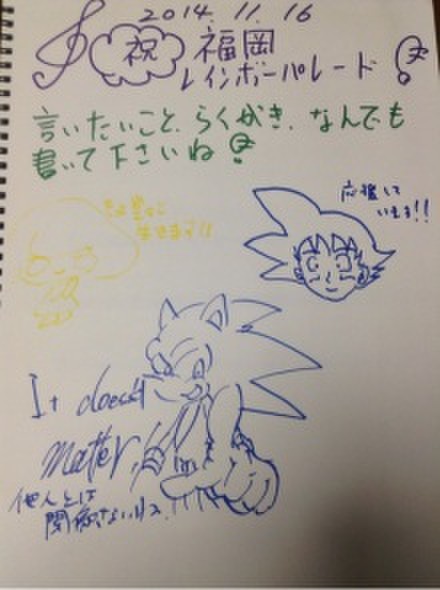 2014.11.16
祝 福岡
レインボーパレード
言いたいこと、らくがき、なんでも
書いて下さいね
応援して
います!!
It doesn't
matter!
他人とは
関係ないねェ